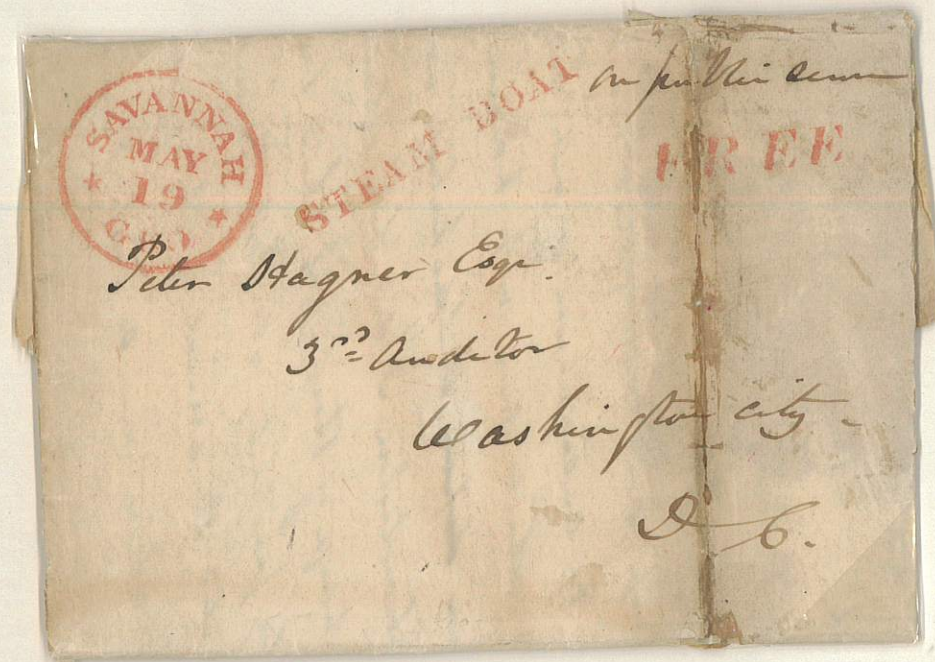 SAVANNAH
MAY
19
GEO.
STEAM BOAT
on public serv
FREE
Peter Hagner Esqr.
3rd Auditor
Washington city -
D C.